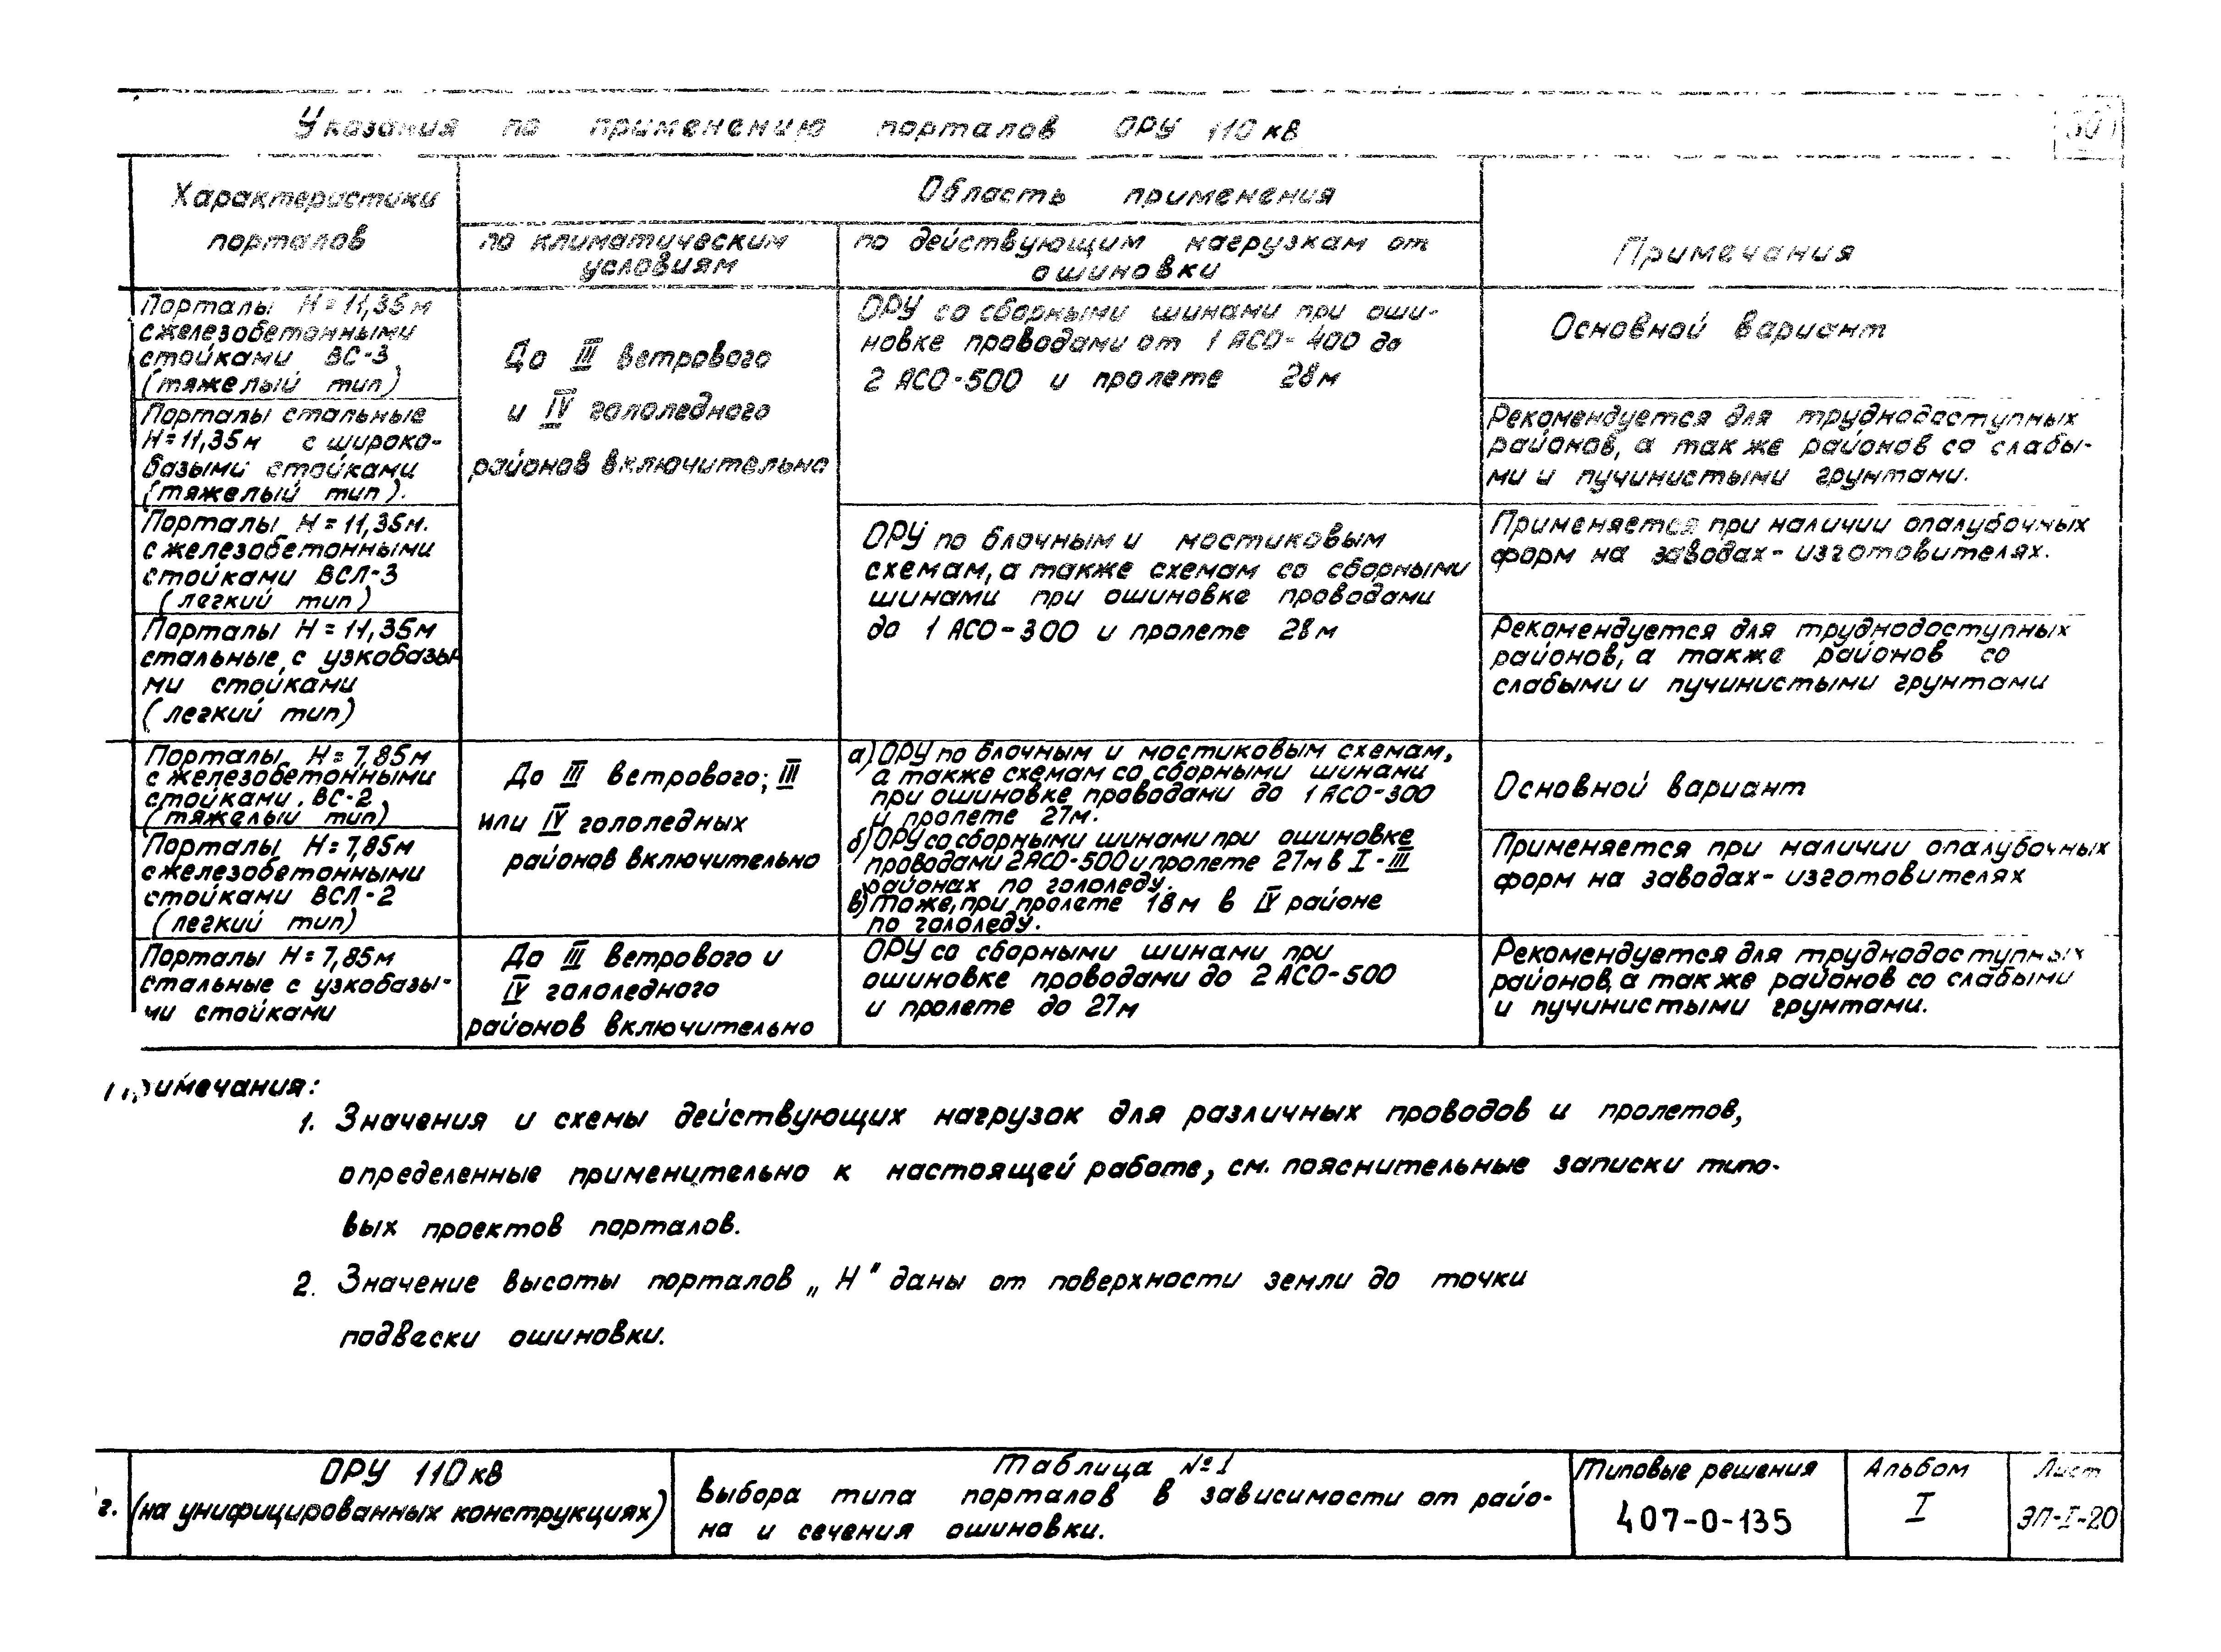 Указания по применению порталов ОРУ 110 кв
Характеристики
порталов
Область применения
по климатическим
условиям
по действующим нагрузкам от
ошиновки
Примечания
Порталы Н=11,35м
с железобетонными
стойками ВС-3
(тяжелый тип)
До III ветрового
и IV гололедного
районов включительно
ОРУ со сборными шинами при оши-
новке проводами от 1 АСО-400 до
2 АСО-500 и пролете 28м
Основной вариант
Порталы стальные
Н=11,35м с широко-
базыми стойками
(тяжелый тип).
Рекомендуется для труднодоступных
районов, а так же районов со слабы-
ми и пучинистыми грунтами.
Порталы Н=11,35м.
с железобетонными
стойками ВСЛ-3
(легкий тип)
ОРУ по блочным и мостиковым
схемам, а также схемам со сборными
шинами при ошиновке проводами
до 1 АСО-300 и пролете 28м
Применяется при наличии опалубочных
форм на заводах-изготовителях.
Порталы Н=11,35м
стальные с узкобазы-
ми стойками
(легкий тип)
Рекомендуется для труднодоступных
районов, а также районов со
слабыми и пучинистыми грунтами
Порталы Н=7,85м
с железобетонными
стойками ВС-2
(тяжелый тип)
До III ветрового; III
или IV гололедных
районов включительно
а) ОРУ по блочным и мостиковым схемам,
а также схемам со сборными шинами
при ошиновке проводами до 1 АСО-300
и пролете 27м.
б) ОРУ со сборными шинами при ошиновке
проводами 2АСО-500 и пролете 27м в I-III
районах по гололеду.
в) То же, при пролете 18м в IV районе
по гололеду.
Основной вариант
Порталы Н=7,85м
с железобетонными
стойками ВСЛ-2
(легкий тип)
Применяется при наличии опалубочных
форм на заводах-изготовителях
Порталы Н=7,85м
стальные с узкобазы-
ми стойками
До III ветрового и
IV гололедного
районов включительно
ОРУ со сборными шинами при
ошиновке проводами до 2 АСО-500
и пролете до 27м
Рекомендуется для труднодоступных
районов, а так же районов со слабыми
и пучинистыми грунтами.
Примечания:
1. Значения и схемы действующих нагрузок для различных проводов и пролетов,
определенные применительно к настоящей работе, см. пояснительные записки типо-
вых проектов порталов.
2. Значение высоты порталов „Н" даны от поверхности земли до точки
подвески ошиновки.
г.
ОРУ 110кв
(на унифицированных конструкциях)
Таблица №I
Выбора типа порталов в зависимости от райо-
на и сечения ошиновки.
Типовые решения
407-0-135
Альбом
I
Лист
ЭП-I-20